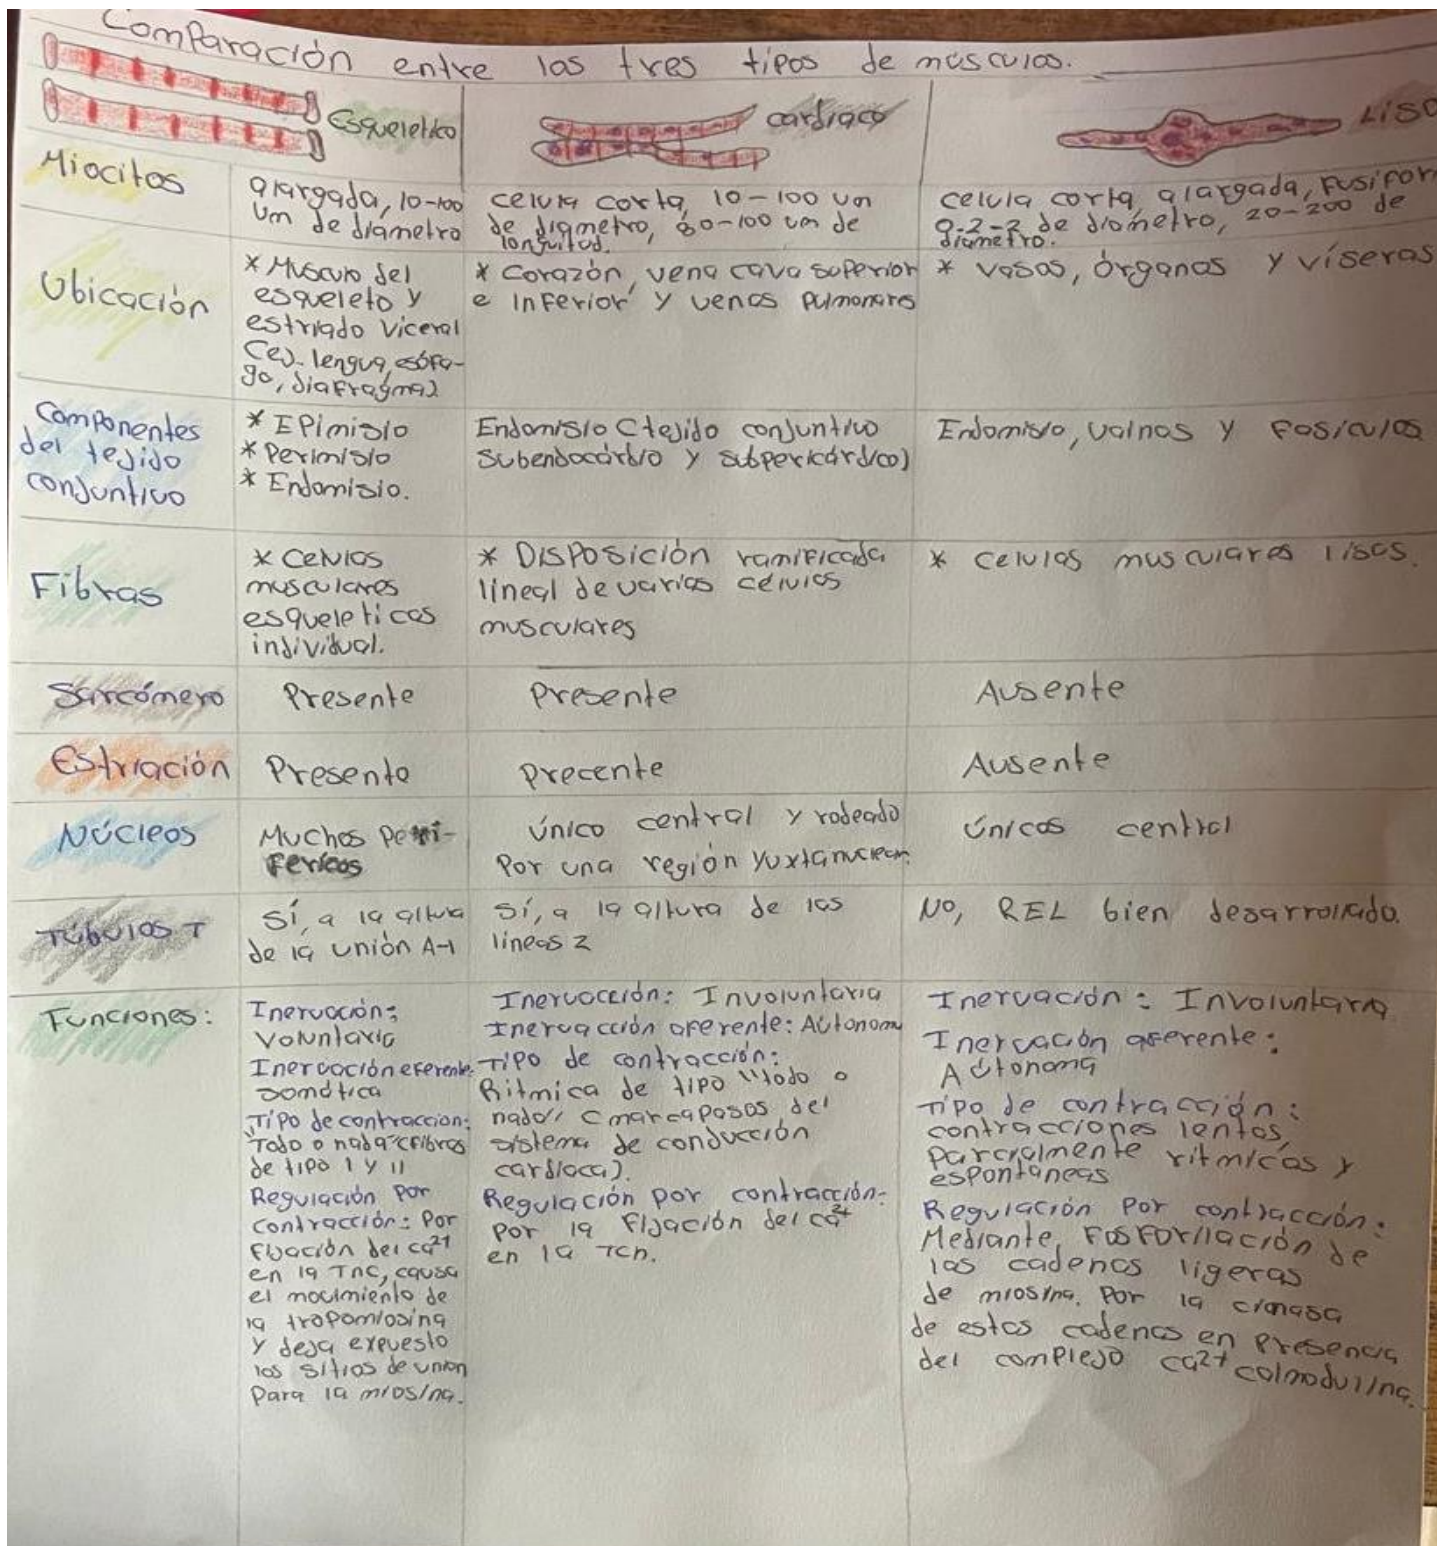 Comparación entre los tres tipos de músculos.
Esqueletico
cardiaco
Liso
Miocitos
alargada, 10-100
um de diametro
celula corta, 10-100 um
de diametro, 80-100 um de
longuitud.
celula corta, alargada, fusifor
0.2-2 de diometro, 20-200 de
diametro.
Ubicación
* Musculo del
esqueleto y
estriado viceral
(ej. lengua, esófa-
go, diafragma)
* Corazón, vena cava superior
e inferior y venas pulmonares
* vasos, órganos y víseras
Componentes
del tejido
conjuntivo
* Epimisio
* Perimisio
* Endomisio.
Endomisio (tejido conjuntivo
subendocárdio y subpericárdico)
Endomisio, vainas y fasiculos
Fibras
* Celulas
musculares
esqueleticas
individual.
* Disposición ramificada
lineal de varias celulas
musculares
* Celulas musculares lisas.
Sarcómero
Presente
Presente
Ausente
Estriación
Presente
precente
Ausente
Núcleos
Muchos peri-
fericos
único central y rodeado
por una región yuxtanuclear.
únicos central
Túbulos T
Sí, a la altura
de la unión A-I
Sí, a la altura de las
líneas z
No, REL bien desarrollado.
Funciones:
Inervación:
voluntaria
Inervación eferente:
somática
Tipo de contraccion:
"Todo o nada" (fibras
de tipo I y II
Regulación por
contracción: Por
fijación del ca2+
en la TnC, causa
el movimiento de
la tropomiosina
y deja expuesto
los sitios de union
para la miosina.
Inervacción: Involuntaria
Inervacción aferente: Autonom
Tipo de contracción:
Ritmica de tipo "todo o
nada" (marcapasos del
sistema de conducción
cardiaca).
Regulación por contracción:
por la fijación del ca2+
en la Tcn.
Inervación: Involuntaria
Inervación aferente:
Autonoma
Tipo de contracción:
contracciones lentas,
parcialmente ritmicas y
espontaneas
Regulación por contracción:
Mediante, fosforilación de
las cadenas ligeras
de miosina. Por la cinasa
de estas cadenas en presencia
del complejo ca2+ calmodulina.